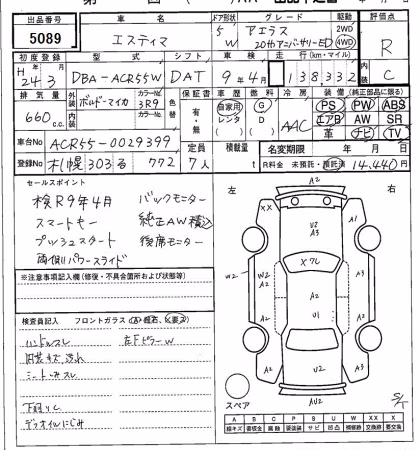 出品番号 車名 ドア形状 グレード 駆動 評価点
5089 エスティマ 5 W アエラス 20thアニバーサリーED 2WD 4WD R
初度登録 型式 シフト 車検 走行(km・マイル) 内装
H 24 3 DBA-ACR55W DAT 9年4月 138332 C
排気量 外装 ボルドーマイカ カラーNo. 3R9 色替 保証書 車歴 燃料 冷房 装備(純正部品に限る)
660 c.c. 内装 カラーNo. 有・無 自家用 レンタ G D AAC PS PW ABS
エアB AW SR
革 ナビ TV
車台No ACR55-0029399 定員 積載量 名変期限 年 月 日
登録No 札幌 303 る 772 7人 t R料金 未預託・預託済 14,440円
セールスポイント
検R9年4月 バックモニター
スマートキー 純正AW積込
プッシュスタート 後席モニター
両側パワースライド
※注意事項記入欄(修復・不具合箇所および状態等)
検査員記入 フロントガラス
ハンドルスレ 左Fピラーw
内装キズ汚れ
シートイタミスレ
下廻りC
デフオイルにじみ
左 右
A2
XX A1
U2
A3
X フル
W2 W2 A2 A2 A1
A2 U1 A3
A2 U2 A3
AU2
スペア
S/T
A B C P S U W XX X